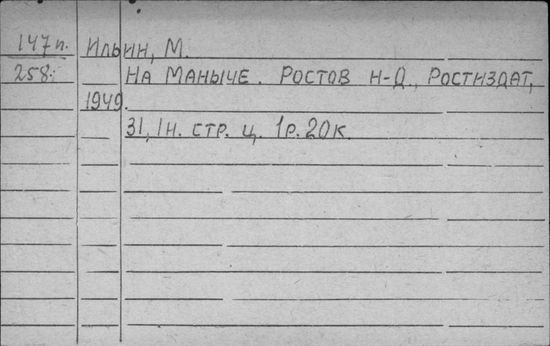 147п. Ильин, М.
258. На Маныче. Ростов н-Д., Ростиздат,
1949.
31, 1н. стр. ц. 1р. 20к.